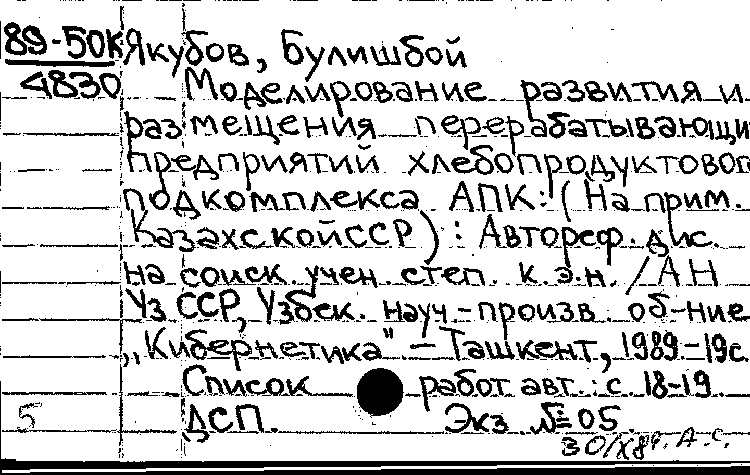 89-50К Якубов, Булишбой
4830 Моделирование развития и
размещения перерабатывающи
предприятий хлебопродуктовог
подкомплекса АПК: (На прим.
Казахской ССР) : Автореф. дис.
на соиск. учен. степ. к.э.н. / АН
Уз ССР, Узбек. науч.-произв. об-ние
„Кибернетика" – Ташкент, 1989 – 19с.
Список работ авт.: с 18-19
5 ДСП. Экз №05.
30/X89. А.С.